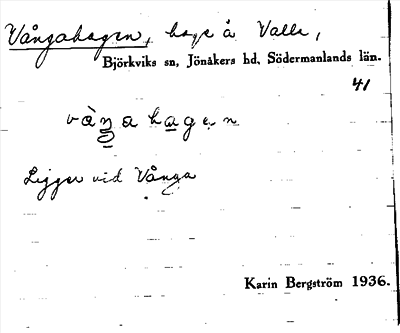 Vångahagen, hage å Valla,
Björkviks sn, Jönåkers hd, Södermanlands län.
41
våŋahagen
Ligger vid Vånga
Karin Bergström 1936.